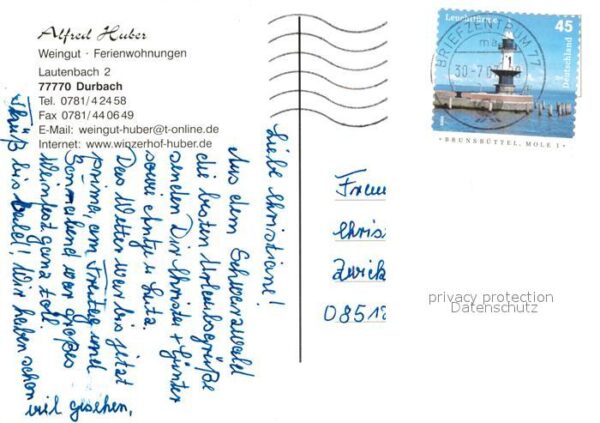 Alfred Huber
Weingut · Ferienwohnungen
Lautenbach 2
77770 Durbach
Tel. 0781/4 24 58
Fax 0781/44 06 49
E-Mail: weingut-huber@t-online.de
Internet: www.winzerhof-huber.de
Liebe Christiane!
Aus dem Schwarzwald
die besten Urlaubsgrüße
senden Dir Christa + Günter
sowie Antje u. Lutz.
Das Wetter war bis jetzt
prima, am Freitag und
Sonnabend war großes
Weinfest ganz toll
Tschüß bis bald! Wir haben schon
viel gesehen.
Leuchttürme
45
Deutschland
BRIEFZENTRUM 77
ma
30.-7.0
BRUNSBÜTTEL, MOLE 1
Frau
Chris
Zwick
08518
privacy protection
Datenschutz